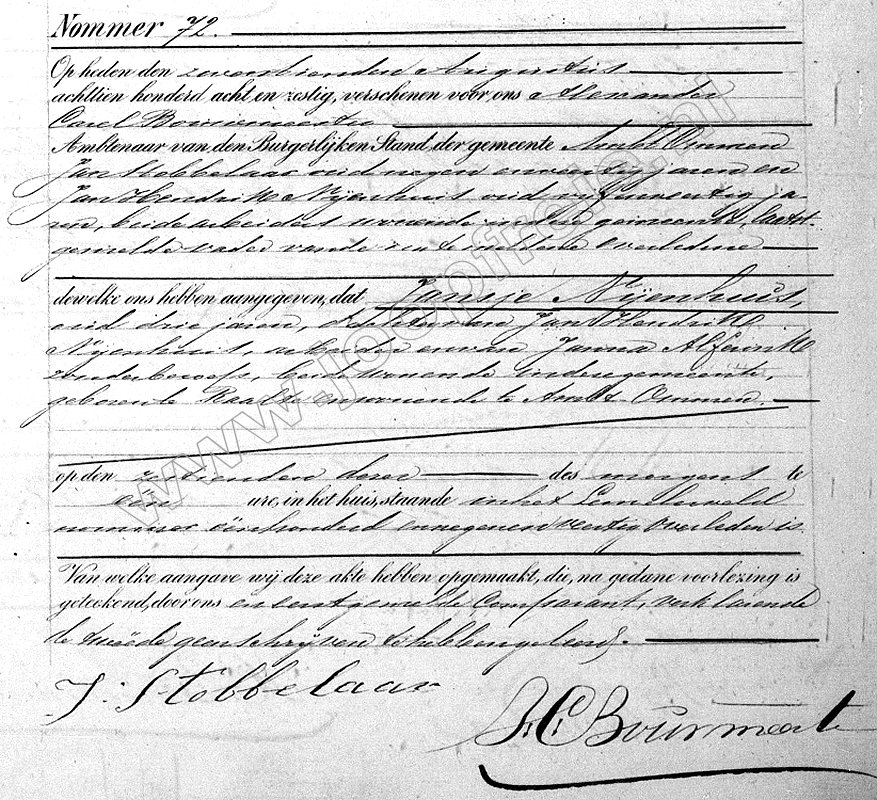 Nommer 72.
Op heden den zeventienden Augustus
achttien honderd acht en zestig, verschenen voor ons Alexander
Carel Bouwmeester
Ambtenaar van den Burgerlijken Stand der gemeente Ambt Ommen
Jan Stobbelaar oud negen en veertig jaren en
Jan Hendrik Nijenhuis oud vijf en veertig ja-
ren, beide arbeiders wonende in deze gemeente, laatst-
gemelde vader van de na te melden overledene
dewelke ons hebben aangegeven, dat Jansje Nijenhuis,
oud drie jaren, dochter van Jan Hendrik
Nijenhuis, arbeider en van Janna Alferink
zonder beroep, beide wonende in deze gemeente,
geboren te Raalte en wonende te Ambt Ommen.
op den zestienden dezer des morgens te
een ure, in het huis, staande in het Lemelerveld
nommer één honderd en negen en veertig overleden is.
Van welke aangave wij deze akte hebben opgemaakt, die, na gedane voorlezing is
geteekend, door ons en eerstgemelde Comparant, verklarende
de tweede geen schrijven te hebben geleerd.
J. Stobbelaar
A C Bouwmeeste
www.joopfreia.nl